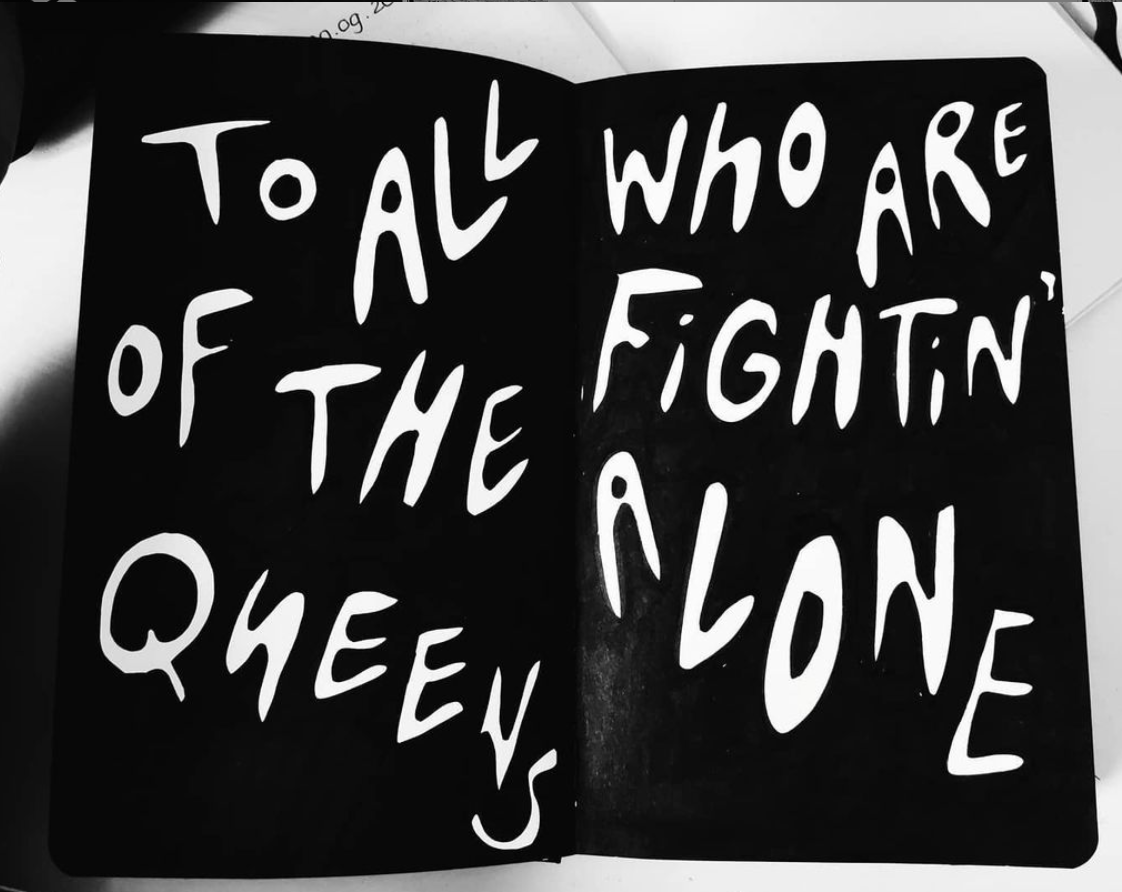 To ALL
OF THE
QuEENS
WhO ARE
FiGHTiN'
ALONE